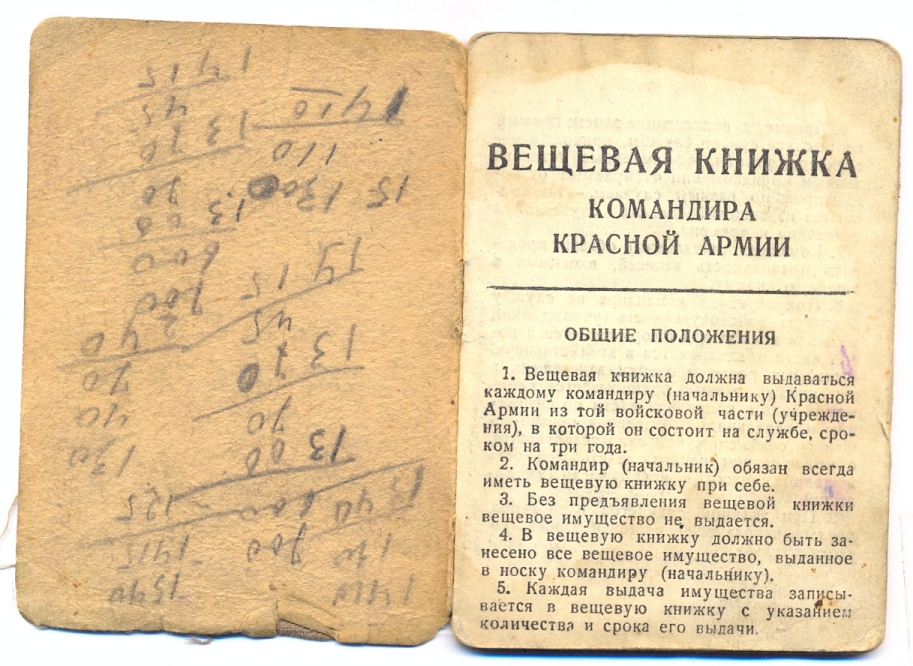 1410
130
1540
700
600
1300
70
1370
45
1415
15. 1300
110
1410
1540
1415
125
130
40
70
240
700
600
1300
70
1370
45
1415
ВЕЩЕВАЯ КНИЖКА
КОМАНДИРА
КРАСНОЙ АРМИИ
ОБЩИЕ ПОЛОЖЕНИЯ
1. Вещевая книжка должна выдаваться
каждому командиру (начальнику) Красной
Армии из той войсковой части (учрежде-
ния), в которой он состоит на службе, сро-
ком на три года.
2. Командир (начальник) обязан всегда
иметь вещевую книжку при себе.
3. Без предъявления вещевой книжки
вещевое имущество не выдается.
4. В вещевую книжку должно быть за-
несено все вещевое имущество, выданное
в носку командиру (начальнику).
5. Каждая выдача имущества записы-
вается в вещевую книжку с указанием
количества и срока его выдачи.